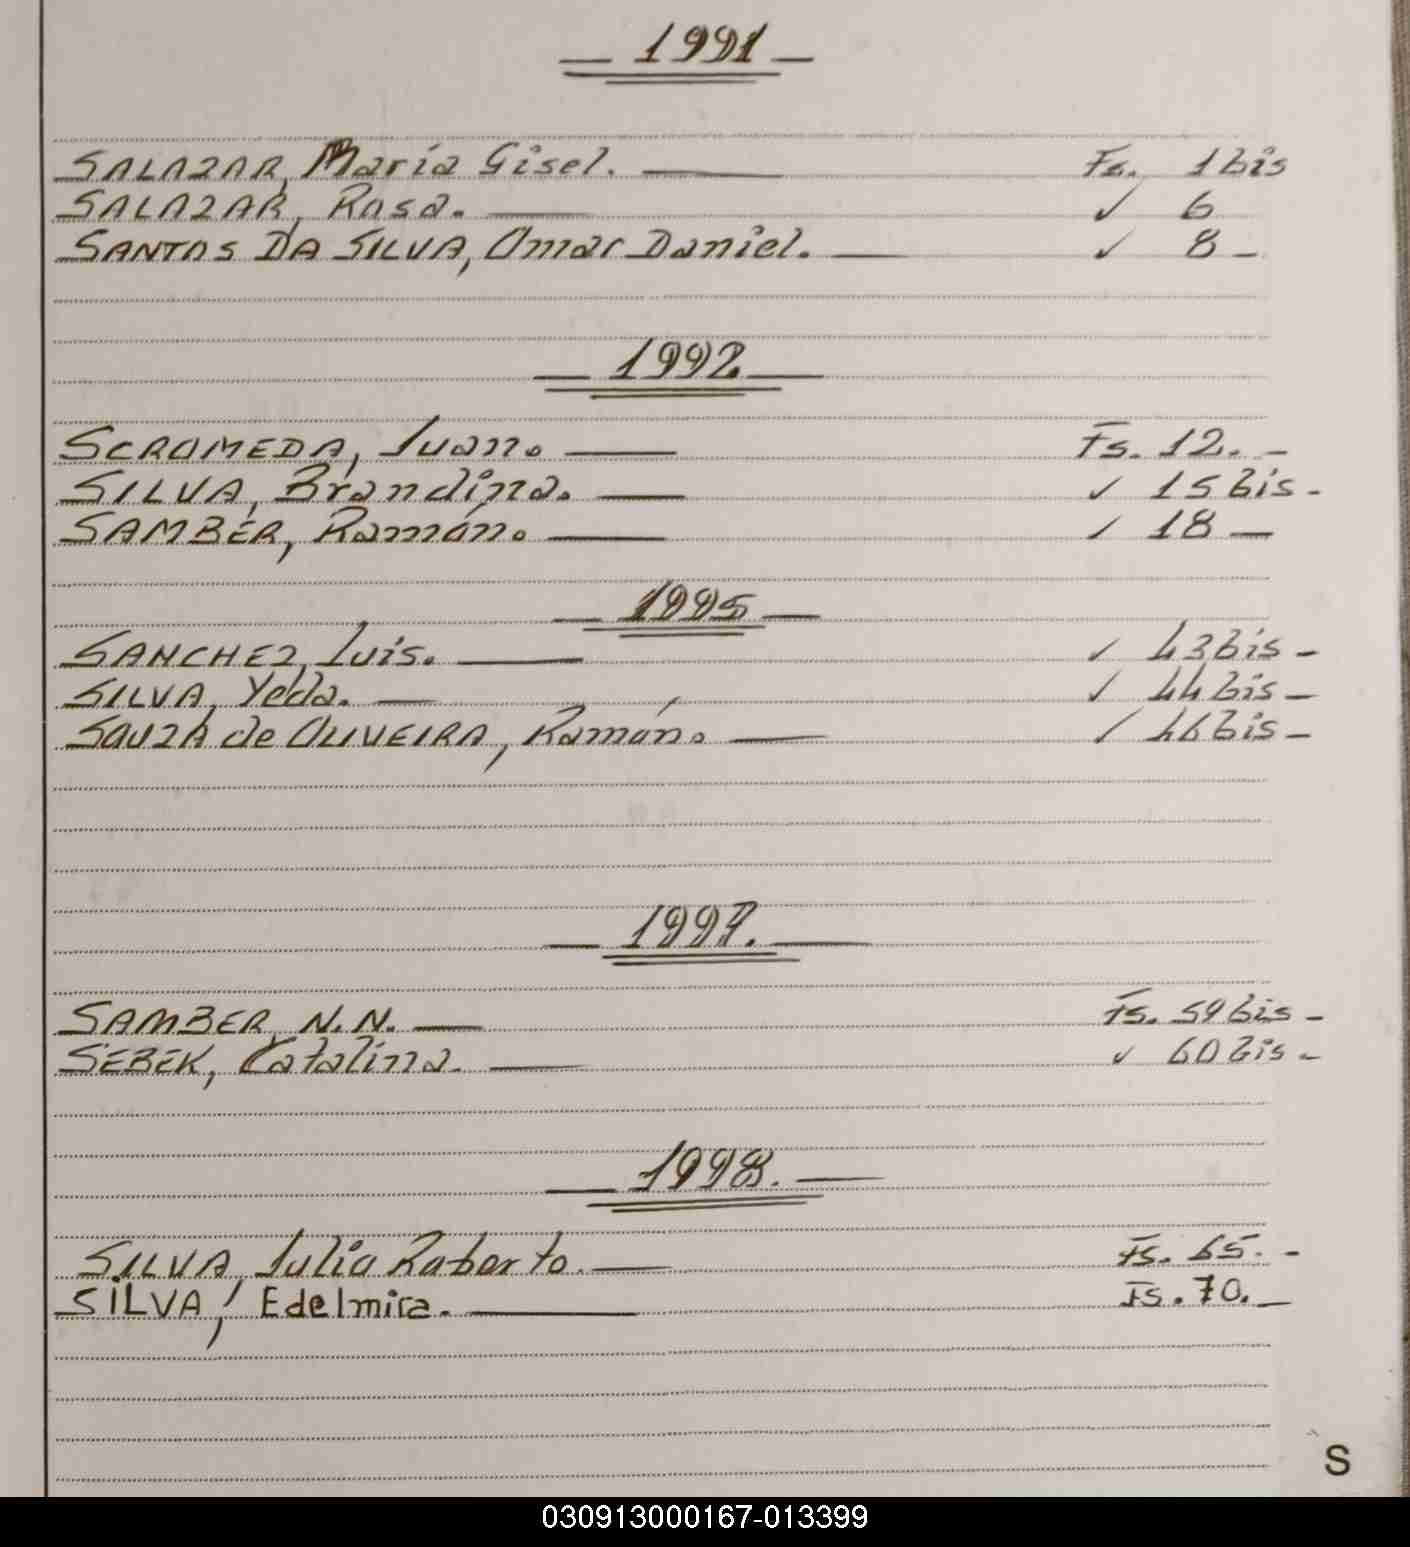 — 1991 —
SALAZAR, María Gisel. — Fs. 1 bis
SALAZAR, Rosa. — ✓ 6
SANTOS DA SILVA, Omar Daniel. — ✓ 8 —
— 1992 —
SCROMEDA, Juan. — Fs. 12. —
SILVA, Brandina. — ✓ 15 bis —
SAMBER, Ramón. — ✓ 18 —
— 1995 —
SANCHEZ, Luis. — ✓ 43 bis —
SILVA, Yeda. — ✓ 44 bis —
SOUZA de OLIVEIRA, Ramón. — ✓ 46 bis —
— 1997. —
SAMBER, N.N. — Fs. 59 bis —
SEBEK, Catalina. — ✓ 60 bis —
— 1998. —
SILVA, Julio Roberto. — Fs. 65. —
SILVA, Edelmira. — Fs. 70. —
S
030913000167-013399